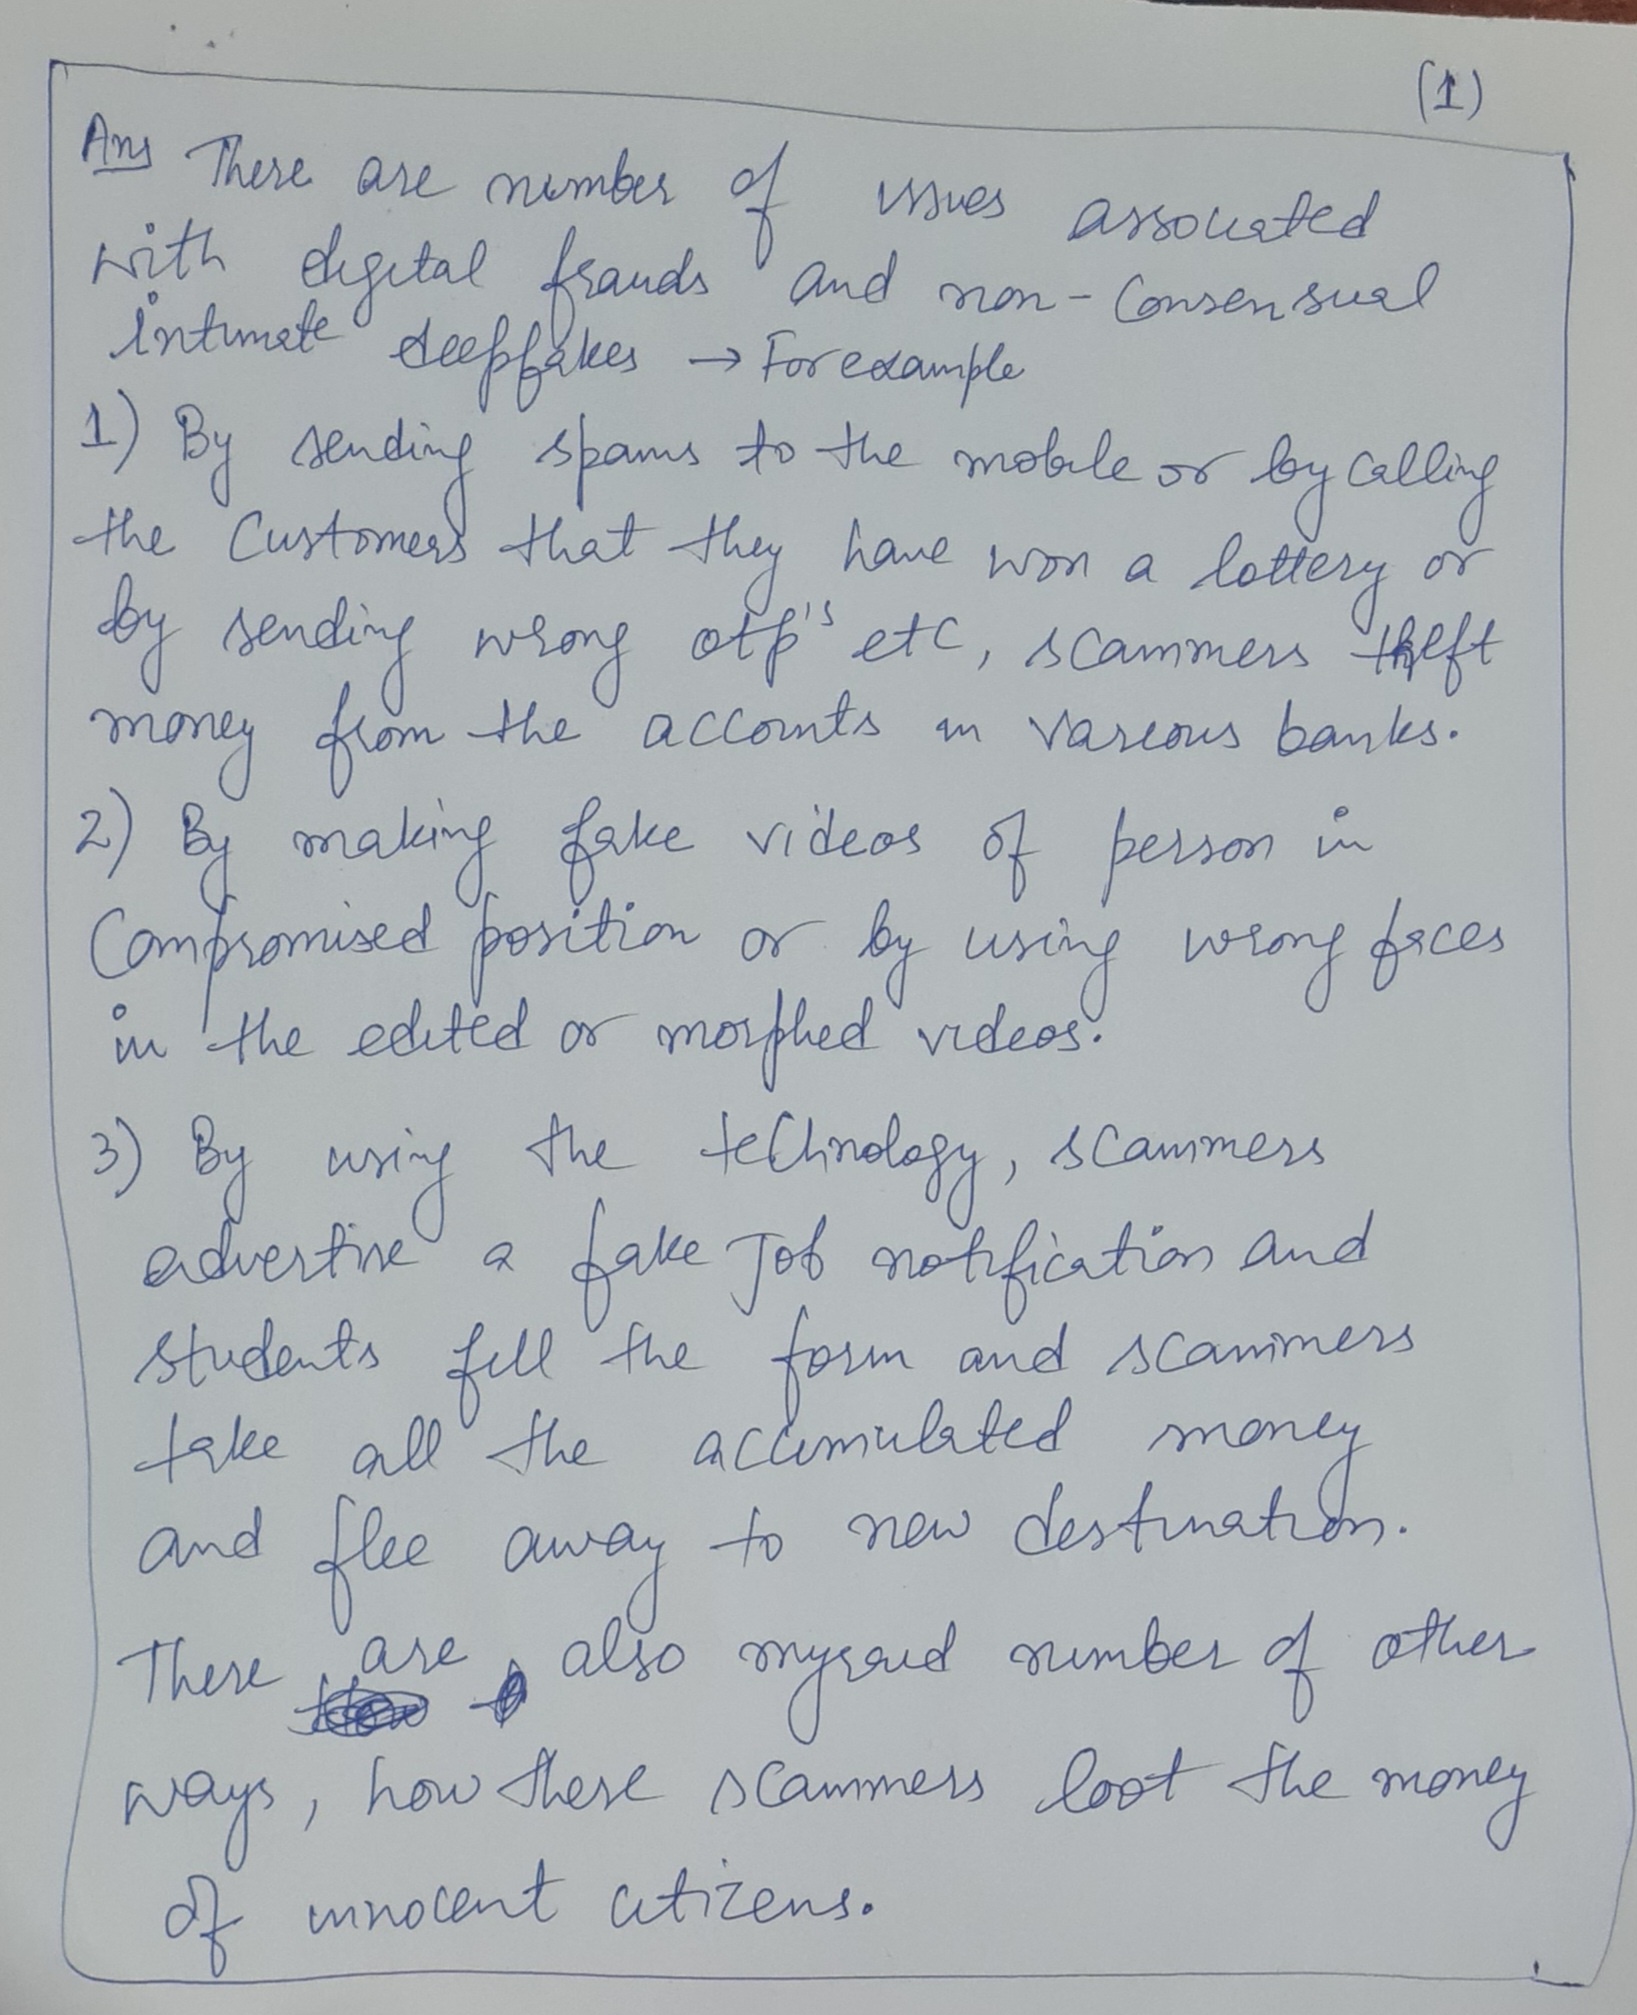 (1)
Ans There are number of issues associated
with digital frauds and non-Consensual
intimate deepfakes → For example
1) By sending spams to the mobile or by calling
the Customers that they have won a lottery or
by sending wrong otp's etc, scammers theft
money from the accounts in various banks.
2) By making fake videos of person in
Compromised position or by using wrong faces
in the edited or morphed videos.
3) By using the technology, scammers
advertise a fake Job notification and
students fill the form and scammers
take all the accumulated money
and flee away to new destination.
There are also myraid number of other
ways, how these scammers loot the money
of innocent citizens.